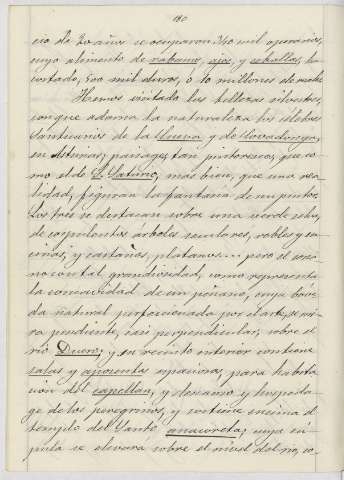 180
cio de 20 años se ocuparon 360 mil operarios,
cuyo alimento de rabanos, ajos, y cebollas, ha
costado, 500 mil duros, o 10 millones de reales
Hemos visitado las bellezas silvestres,
conque adorna la naturaleza los célebres
Santuarios de la Cueva, y de Covadonga,
en Asturias; paisages, tan pintorescos, que co-
mo el de S. Saturio, mas bien, que una rea-
lidad, figuran la fantasia de un pintor.
Los tres se destacan sobre una verde selva,
de corpulentos árboles seculares, robles y en-
cinas, y castaños, platanos... pero el
no con tal grandiosidad, como representa
la concavidad de un peñasco, cuya bóve-
da natural perfeccionada por el arte, se mi-
ra pendiente, casi perpendicular, sobre el
rio Duero; y en recinto interior contiene
salas y aposentos espaciosos, para habita-
cion del capellan, y descanso y hospeda-
ge de los peregrinos, y contiene encima el
templo del Santo anacoreta; cuya cú-
pula se elevará sobre el nivel del rio, co-